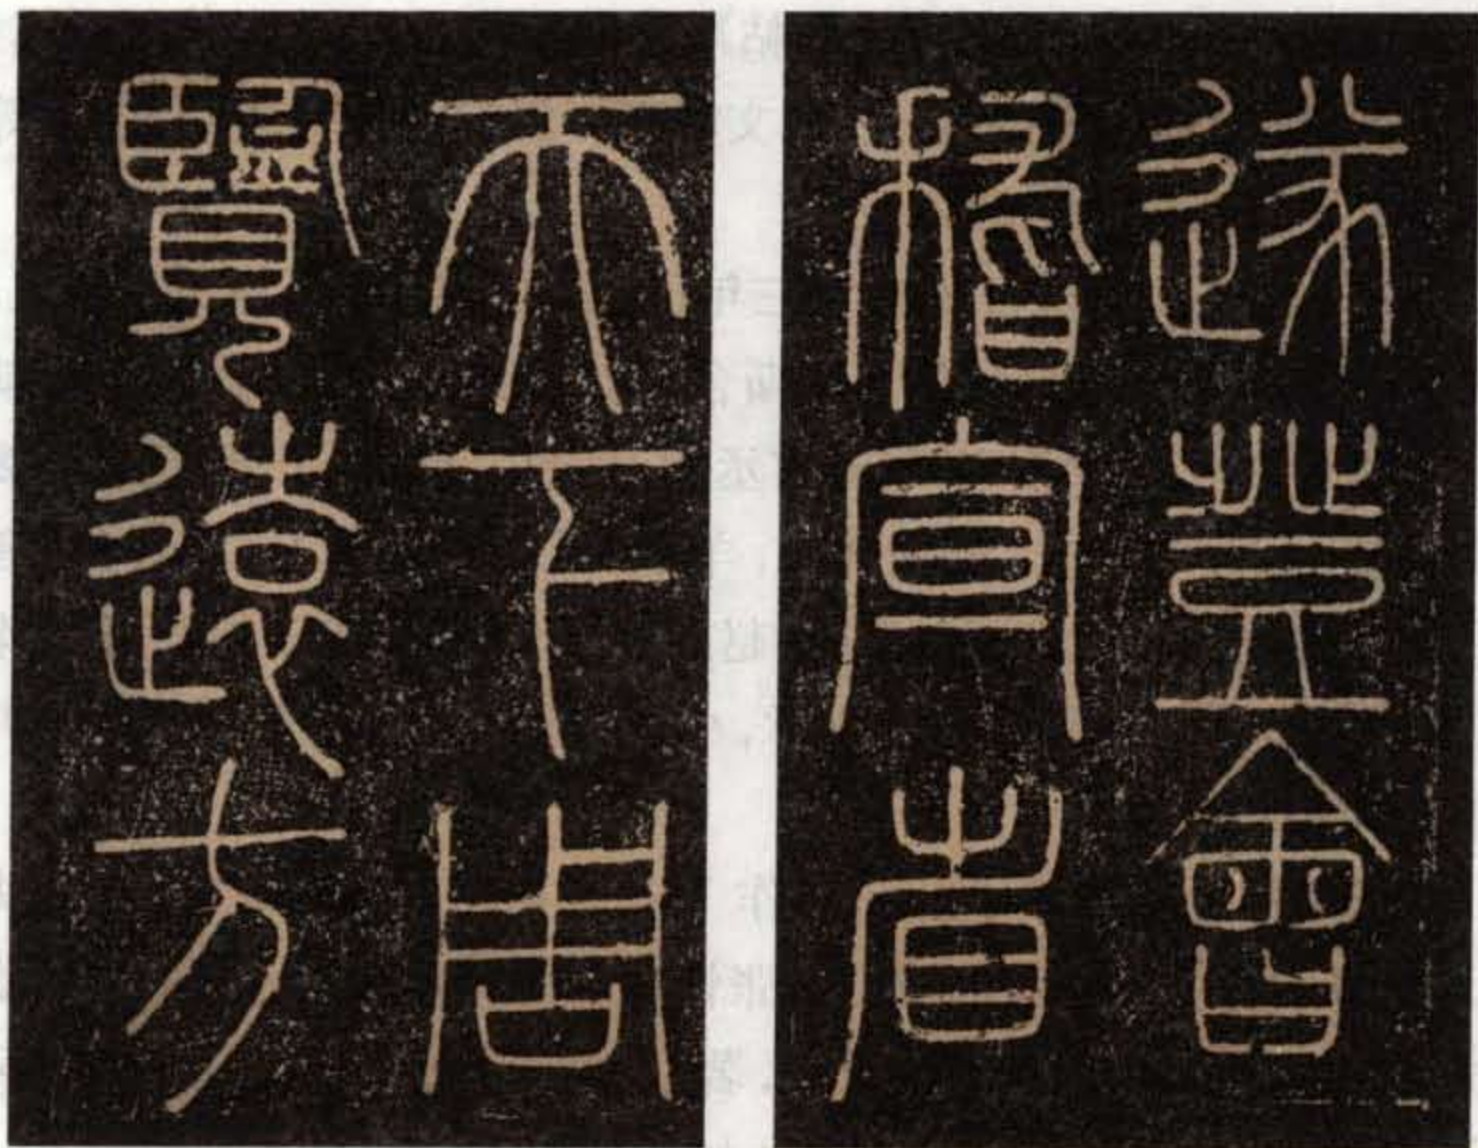 遂登會
稽宣省
天下周
覽遠方